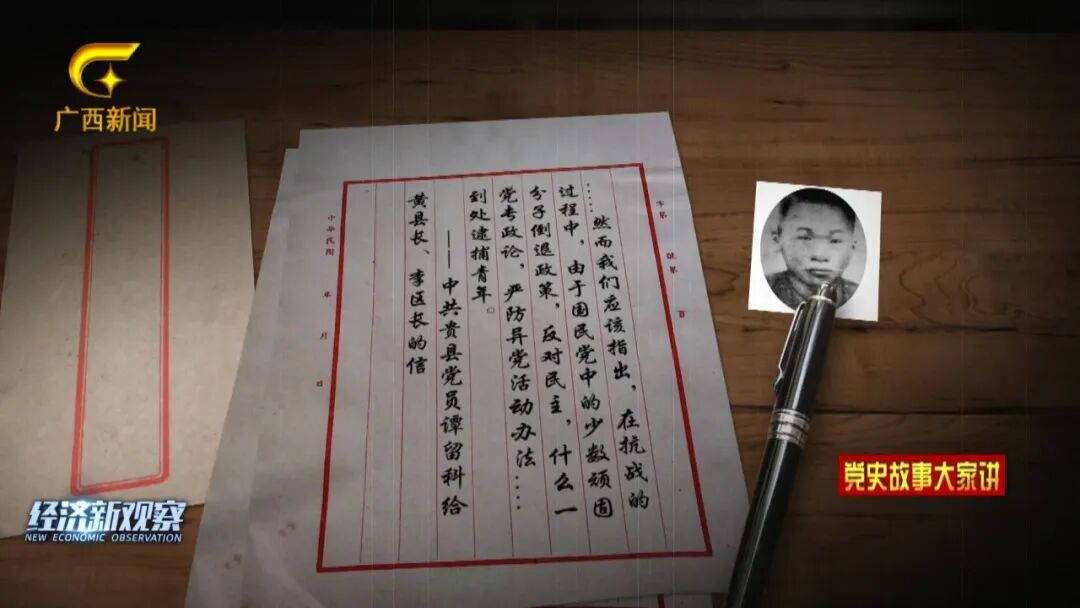 广西新闻
……然而我们应该指出，在抗战的
过程中，由于国民党中的少数顽固
分子倒退政策，反对民主，什么一
党专政论，严防异党活动办法……
到处逮捕青年。
——中共贵县党员谭留科给
黄县长、李区长的信
中华民国 年 月 日
字第 号第 页
党史故事大家讲
经济新观察
NEW ECONOMIC OBSERVATION